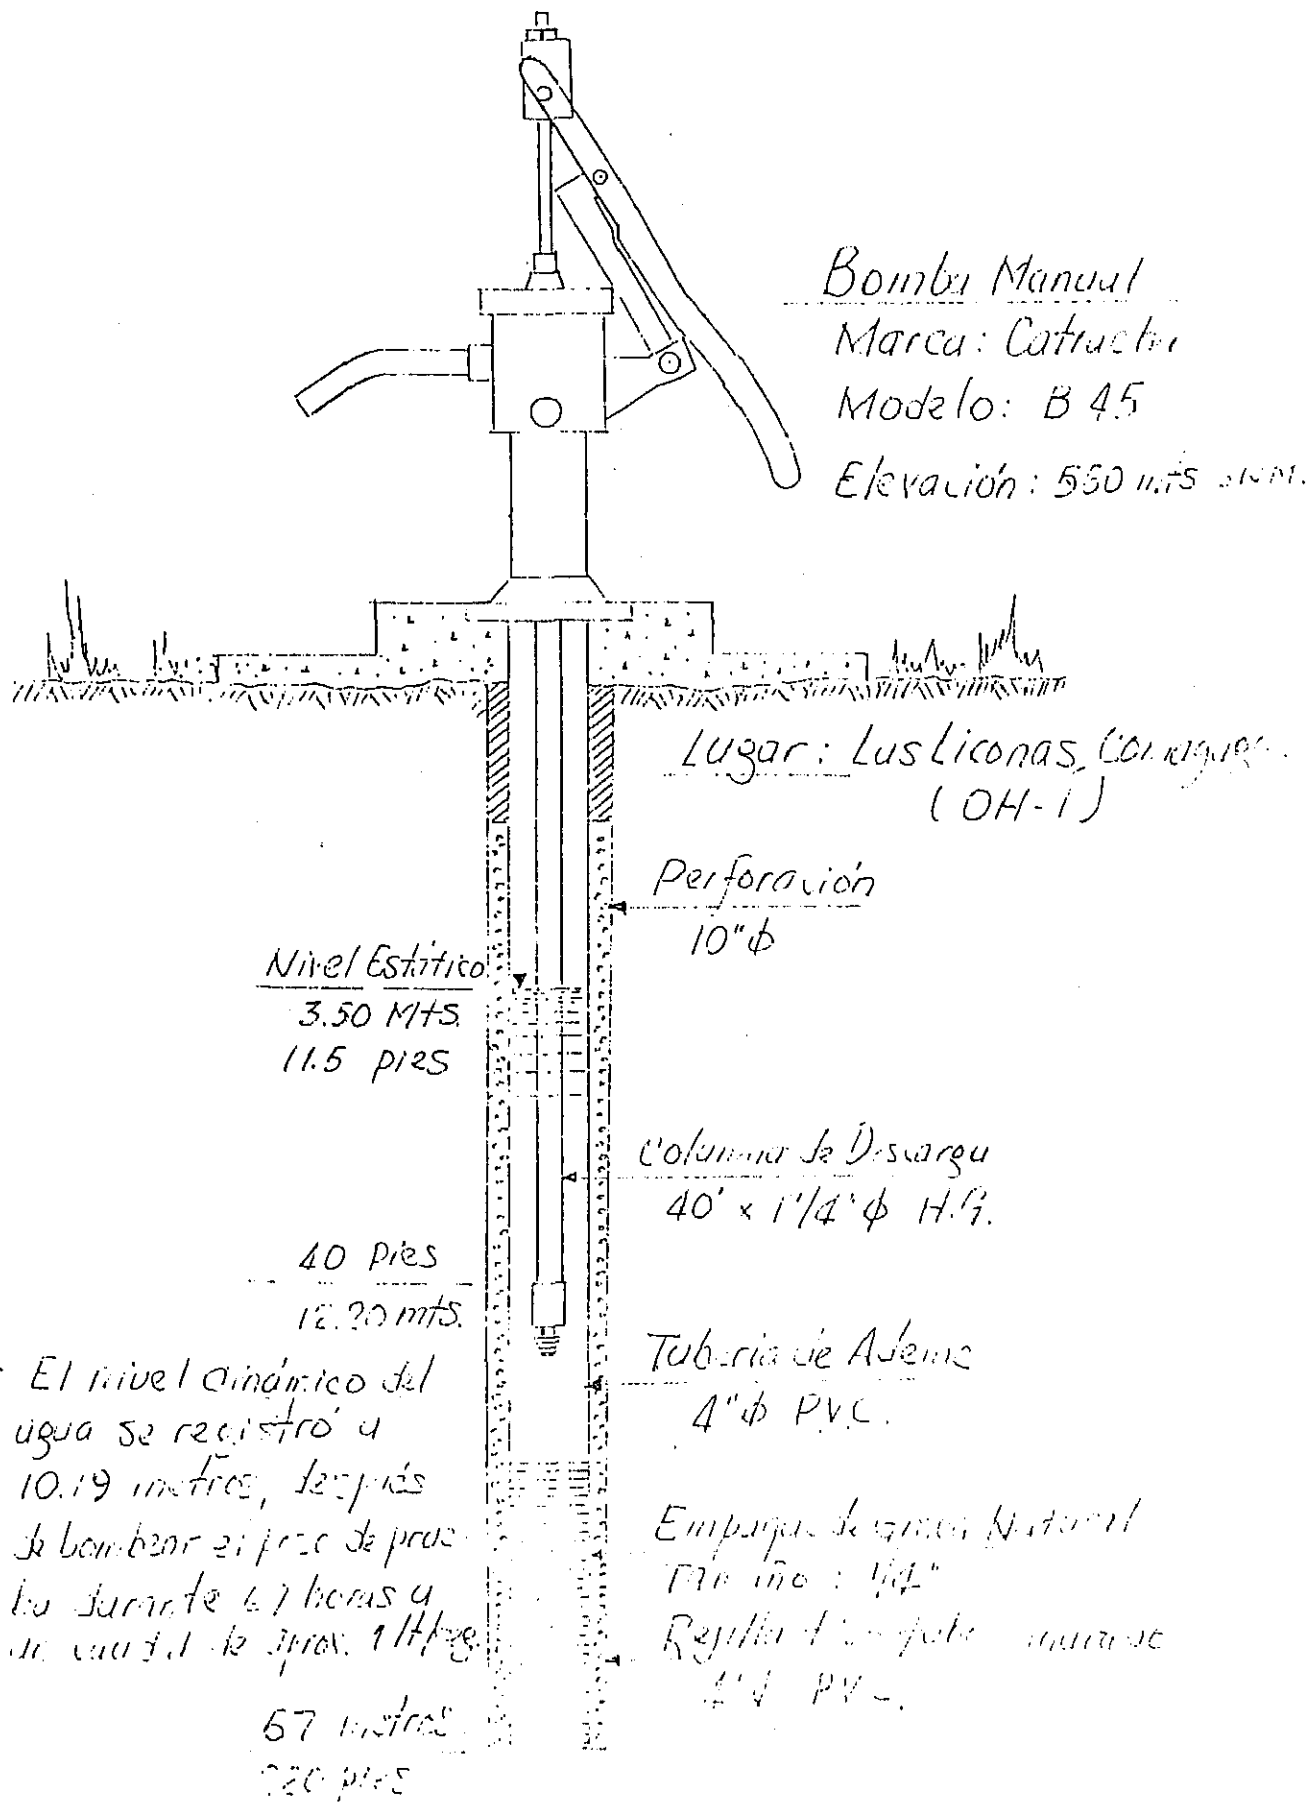 Bomba Manual
Marca: Catracha
Modelo: B 45
Elevación: 550 mts SNM.
Lugar: Las Liconas, Comayagua.
(OH-1)
Perforación
10"ϕ
Nivel Estático
3.50 Mts.
11.5 pies
Columna de Descarga
40' x 1 1/4"ϕ H.G.
40 Pies
12.20 mts.
Tuberia de Ademe
4"ϕ PVC.
El nivel dinámico del
agua se registró a
10.19 metros, después
de bombear el pozo de prue
ba durante horas a
un caudal de aprox. 1 lt/seg.
Empaque de grava Natural
Tamaño: 1/4"
Rejilla
4"ϕ PVC.
67 metros
220 pies